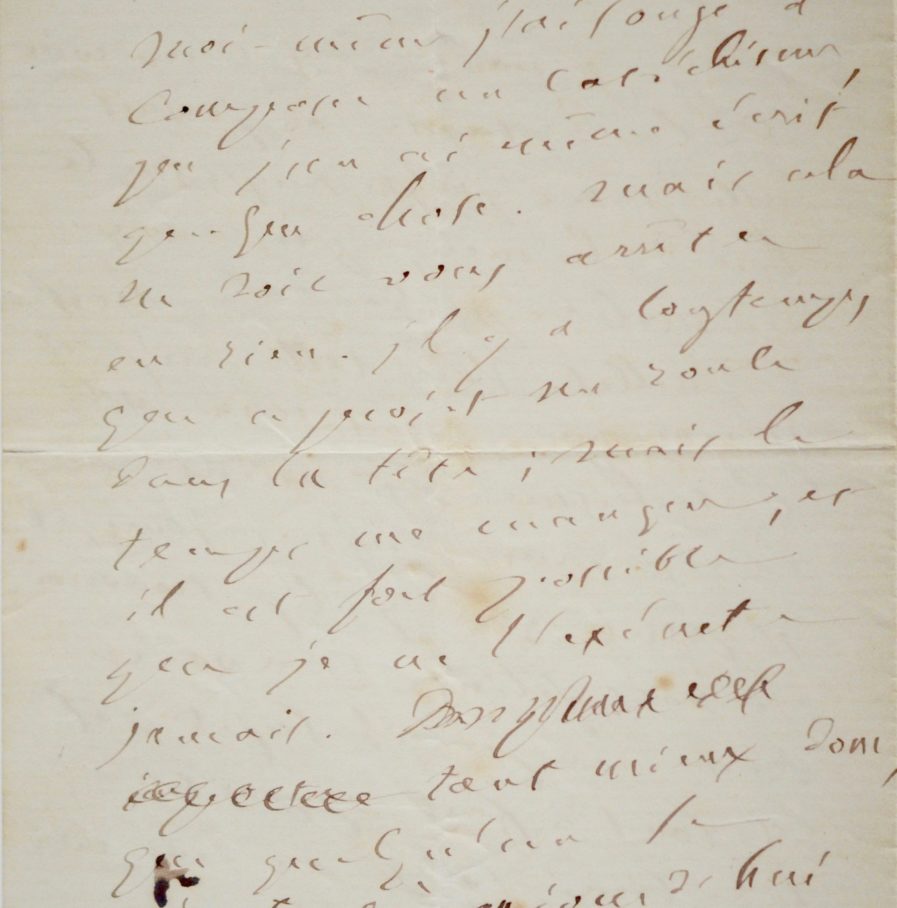 moi-même j'ai songé à
composer un catéchisme,
j'en ai même écrit
quelque chose. mais cela
ne doit vous arrêter
en rien. il y a longtemps
que ce projet me roule
dans la tête ; mais le
temps me manque, et
il est fort possible
que je ne l'exécute
jamais.
tant mieux donc,
que quelqu'un se